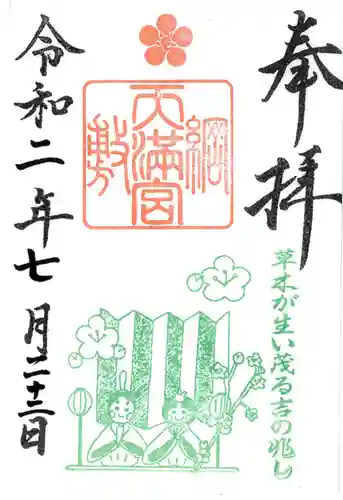 奉拝
綱敷天満宮
草木が生い茂る吉の兆し
令和二年七月二十二日